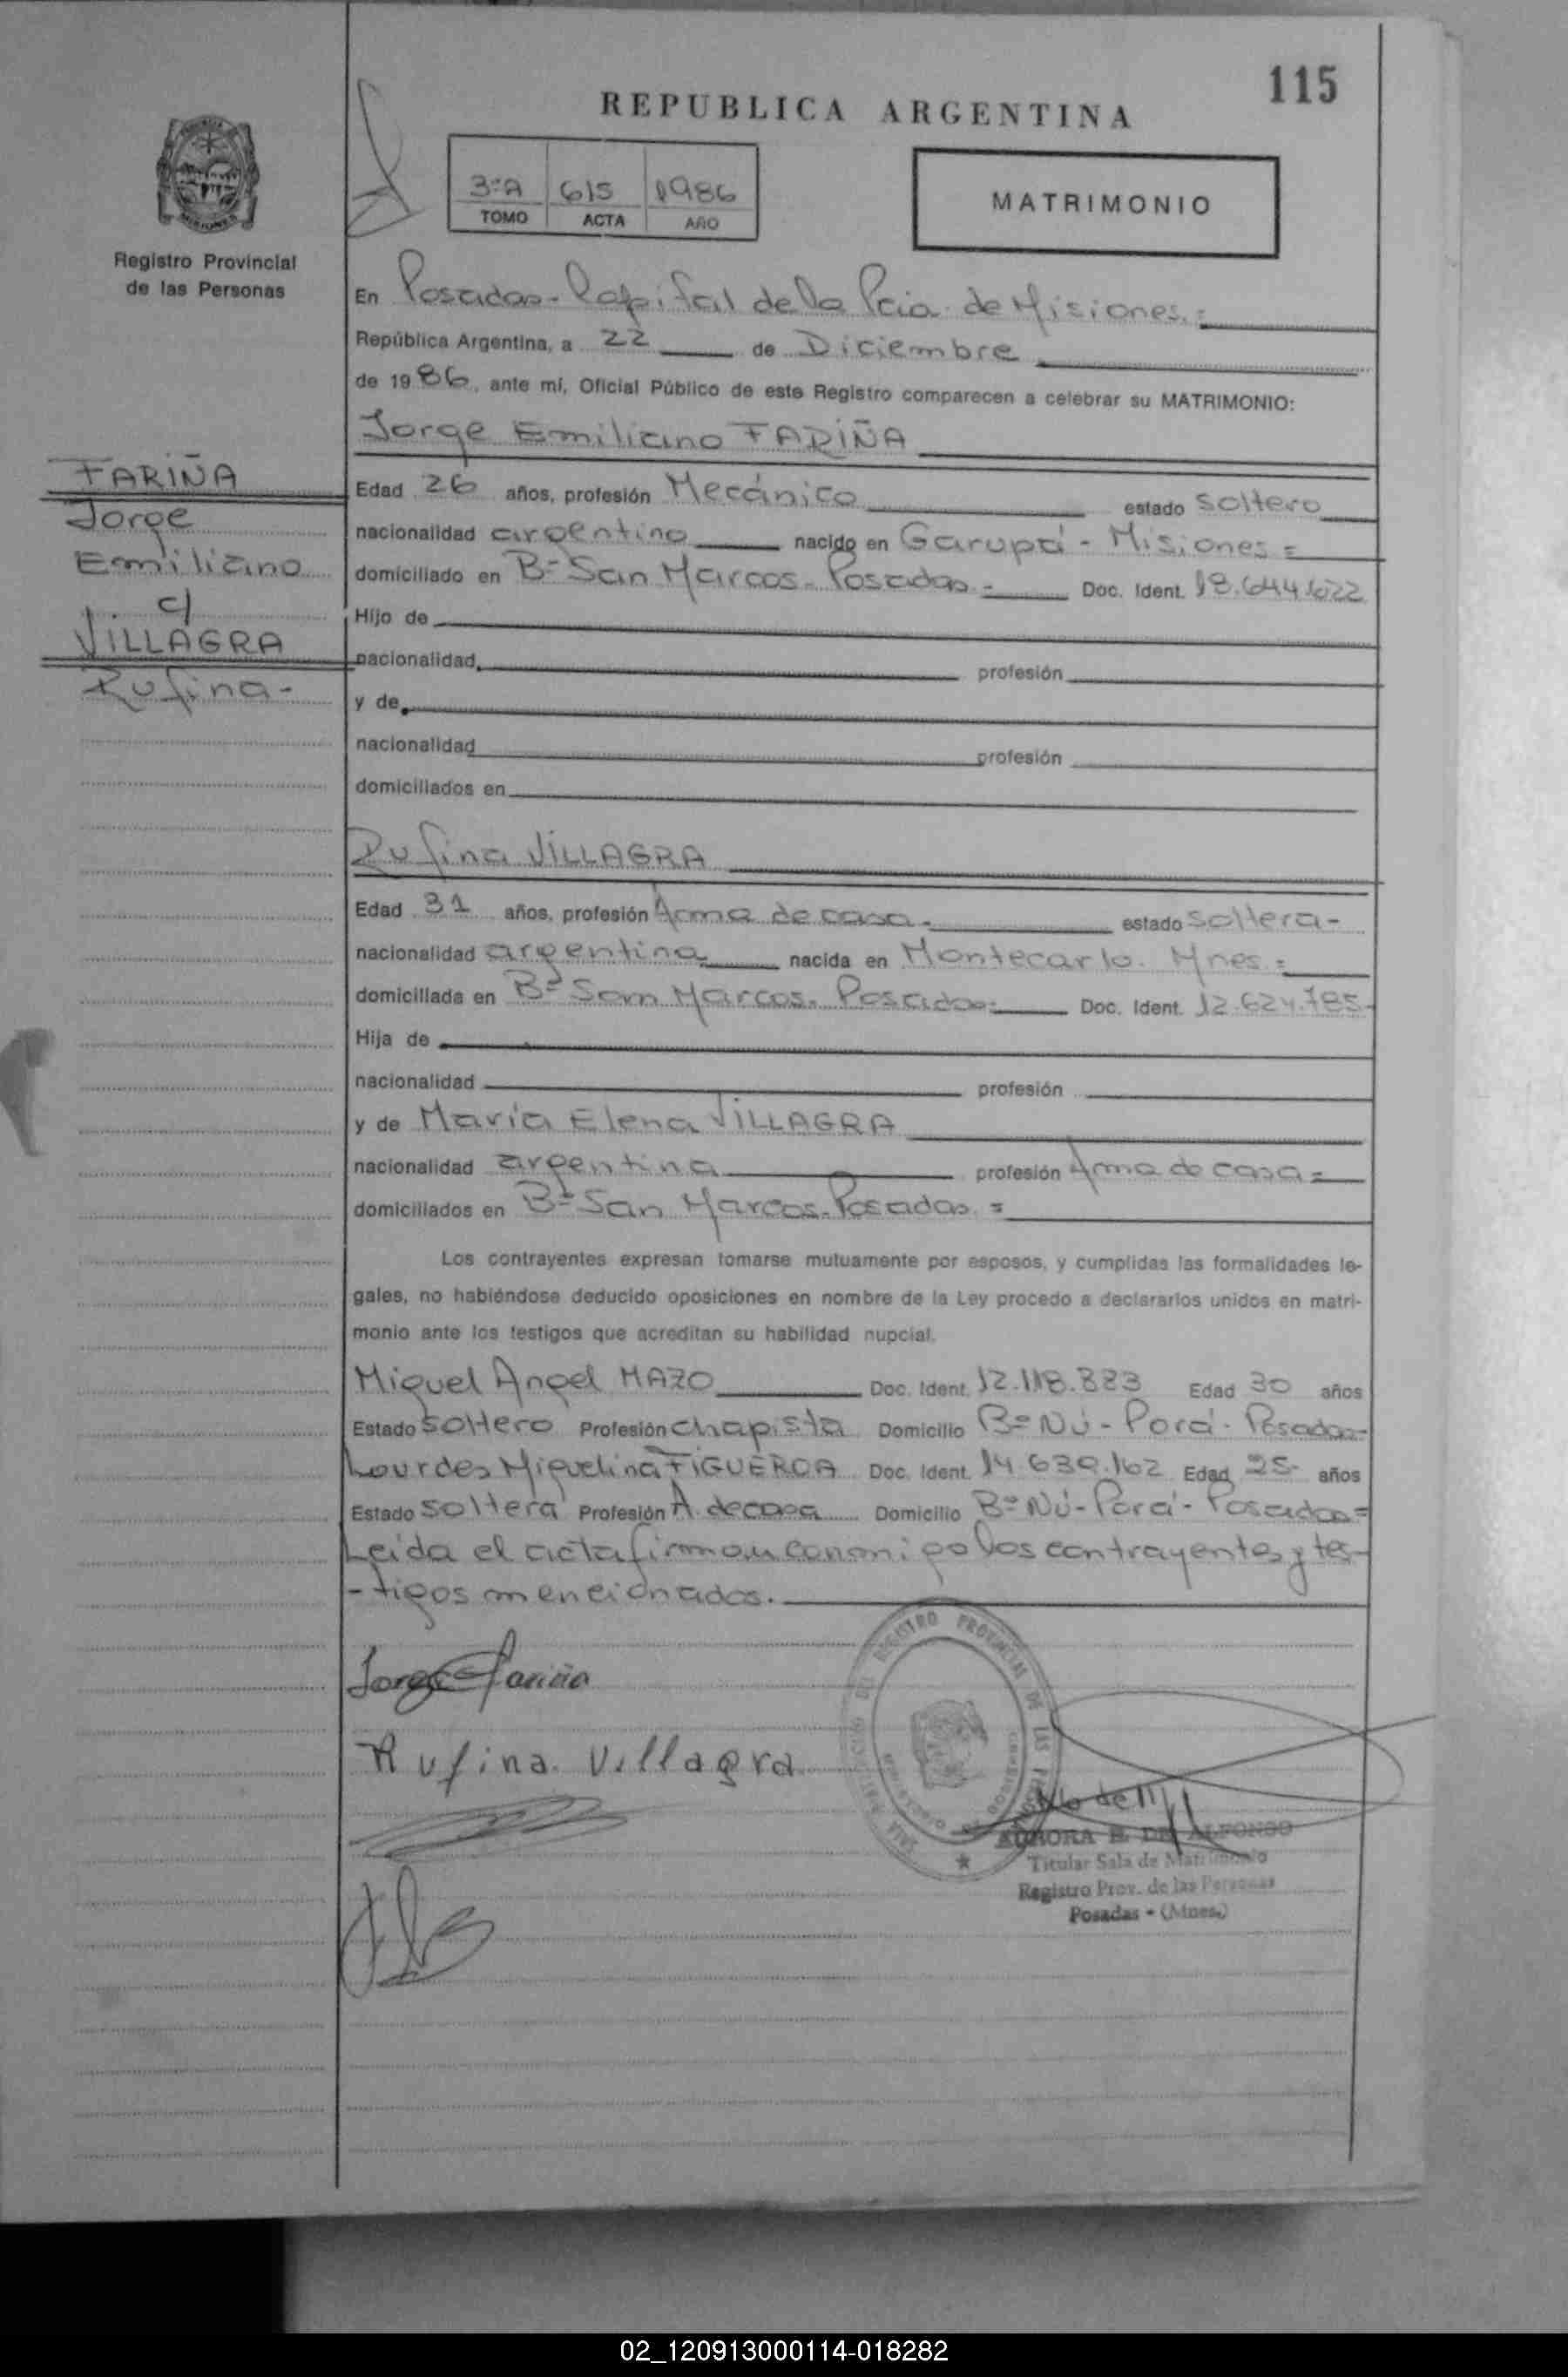 115
REPUBLICA ARGENTINA
3ºA 615 1986
TOMO ACTA AÑO
MATRIMONIO
Registro Provincial
de las Personas
En Posadas - Capital de la Pcia. de Misiones. =
República Argentina, a 22 de Diciembre
de 1986, ante mí, Oficial Público de este Registro comparecen a celebrar su MATRIMONIO:
Jorge Emiliano FARIÑA
FARIÑA
Jorge
Emiliano
c/
VILLAGRA
Rufina-
Edad 26 años, profesión Mecánico estado soltero
nacionalidad argentino nacido en Garupá - Misiones =
domiciliado en Bº San Marcos - Posadas - Doc. Ident.
Hijo de
nacionalidad profesión
y de
nacionalidad profesión
domiciliados en
Rufina VILLAGRA
Edad 31 años, profesión Ama de casa - estado soltera -
nacionalidad argentina nacida en Montecarlo. Mnes =
domiciliada en Bº San Marcos. Posadas = Doc. Ident. 12.624.785-
Hija de
nacionalidad profesión
y de María Elena VILLAGRA
nacionalidad argentina profesión Ama de casa =
domiciliados en Bº San Marcos. Posadas =
Los contrayentes expresan tomarse mutuamente por esposos, y cumplidas las formalidades le-
gales, no habiéndose deducido oposiciones en nombre de la Ley procedo a declararlos unidos en matri-
monio ante los testigos que acreditan su habilidad nupcial.
Miguel Angel MAZO Doc. Ident. 12.118.883 Edad 30 años
Estado soltero Profesión chapista Domicilio Bº Nú - Porá - Posadas-
Lourdes Miguelina FIGUEROA Doc. Ident. 14.639.162 Edad 25- años
Estado soltera Profesión A. de casa Domicilio Bº Nú - Porá - Posadas=
Leída el acta firman conmigo los contrayentes y tes-
-tigos mencionados.
Jorge Fariña
Rufina Villagra
REGISTRO PROVINCIAL DE LAS
AURORA E. DE ALFONSO
Titular Sala de Matrimonio
Registro Prov. de las Personas
Posadas - (Mnes.)
02_120913000114-018282